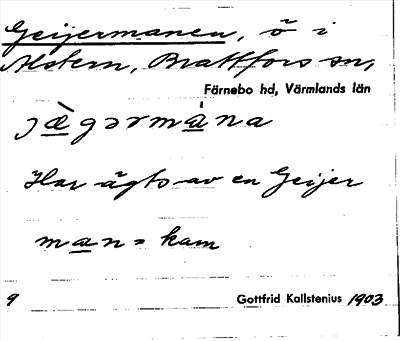 Geijermanen, ö i
Alstern, Brattfors sn,
Färnebo hd, Värmlands län
jæ̀gərmána
Har ägts av en Geijer
man = kam
9 Gottfrid Kallstenius 1903